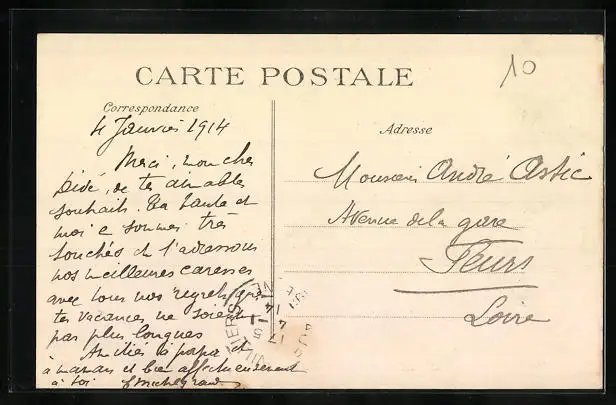 CARTE POSTALE
10
Correspondance
4 Janvier 1914
Merci, mon cher
Dédé, de tes aimables
souhaits. Ta tante et
moi e sommes très
touchés et t'adressons
nos meilleures caresses
avec tous nos regrets que
tes vacances ne soient
pas plus longues
Amitiés à papa et
à maman et bien affectueusement
à toi
Adresse
Monsieur André Astic
Avenue de la gare
Feurs
Loire